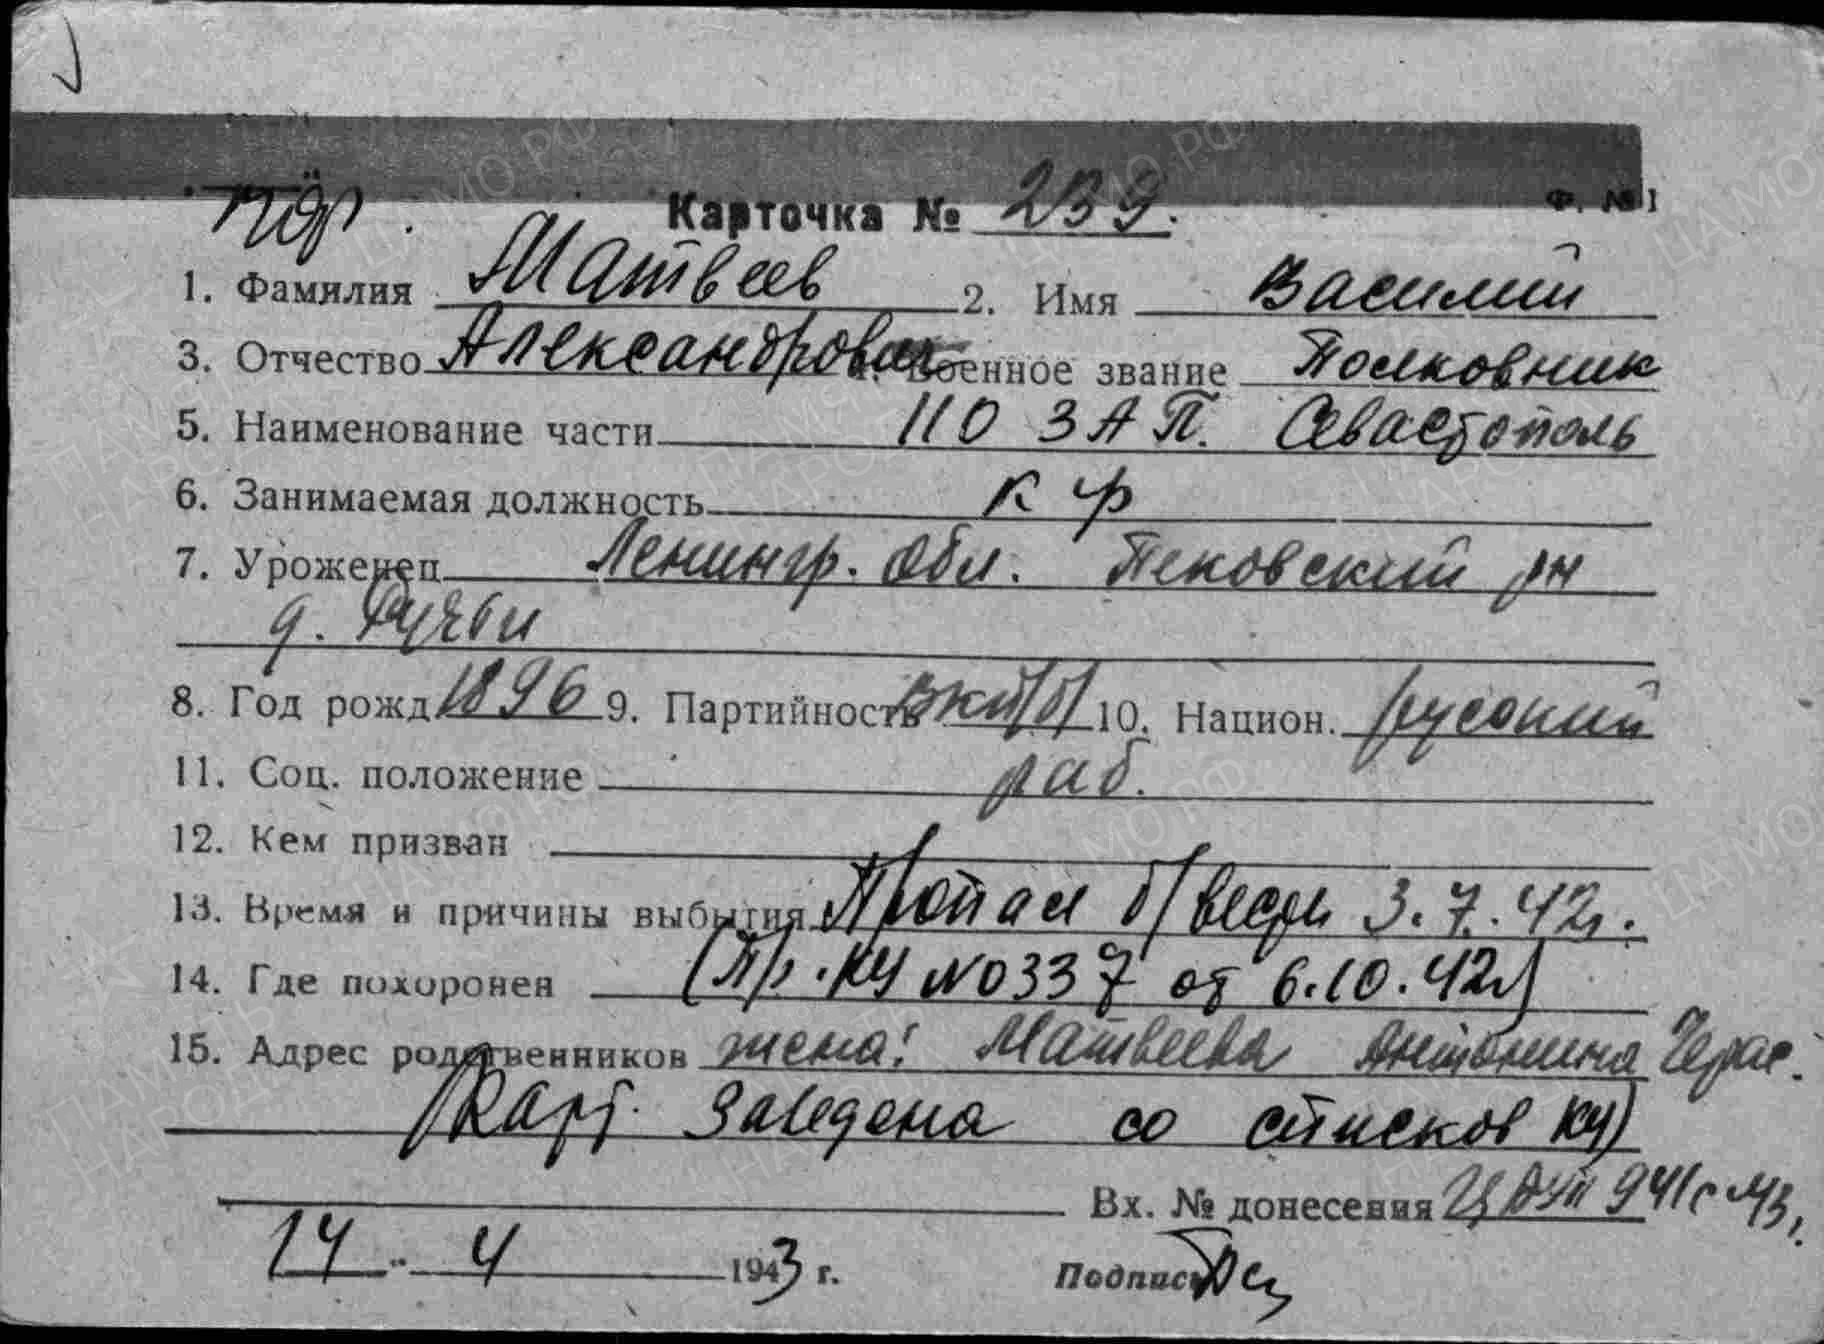 Карточка № 239.
Ф. № 1
1. Фамилия Матвеев 2. Имя Василий
3. Отчество Александрович 4. Военное звание Полковник
5. Наименование части 110 ЗАП. Севастополь
6. Занимаемая должность К-р
7. Уроженец Ленингр. обл. Псковский рн
д. Ручьи
8. Год рожд 1896 9. Партийность ВКП/б/ 10. Национ. русский
11. Соц. положение раб.
12. Кем призван
13. Время и причины выбытия Пропал б/вести 3.7.42г.
14. Где похоронен (Пр. КУ №0337 от 6.10.42г)
15. Адрес родственников жена: Матвеева Антонина Герас.
(Карт. Заведена со списков КУ)
Вх. № донесения 941с-43
14 " 4 1943 г. Подпись
ПАМЯТЬ НАРОДА
ЦАМО РФ